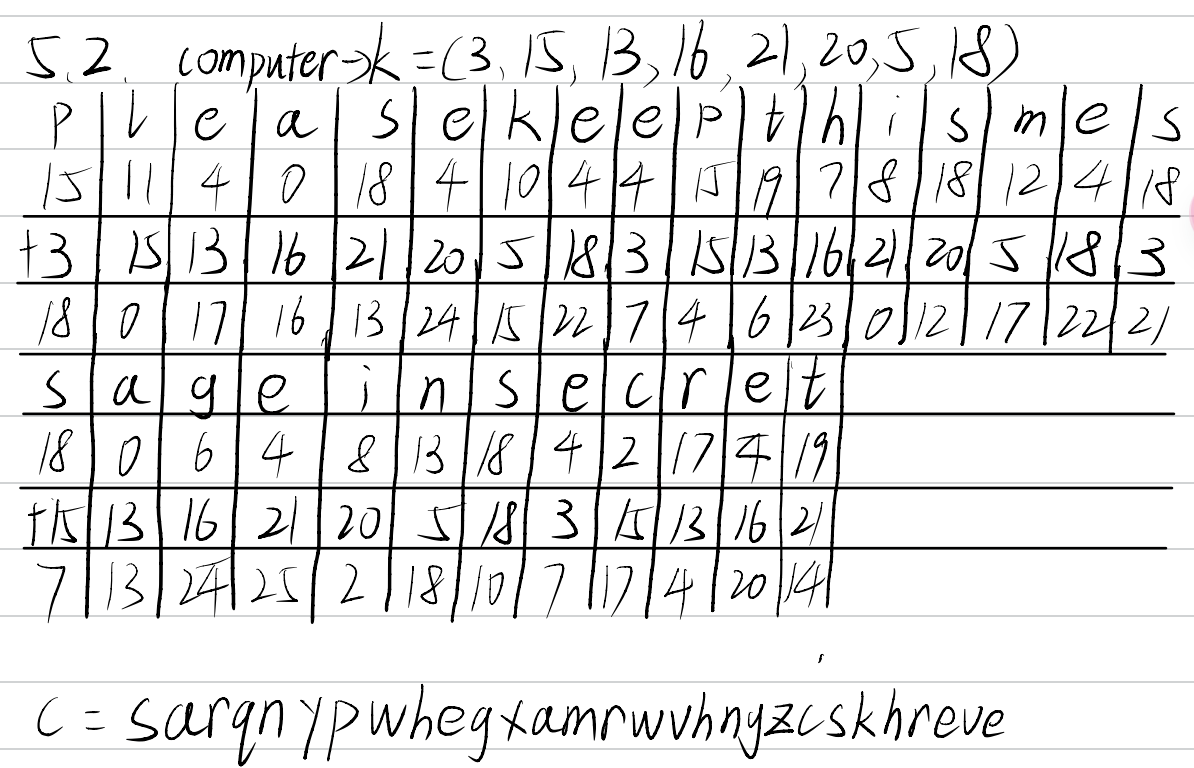 5.2. computer→k=(3, 15, 13, 16, 21, 20, 5, 18)
p l e a s e k e e p t h i s m e s
15 11 4 0 18 4 10 4 4 15 19 7 8 18 12 4 18
+3 15 13 16 21 20 5 18 3 15 13 16 21 20 5 18 3
18 0 17 16 13 24 15 22 7 4 6 23 0 12 17 22 21
s a g e i n s e c r e t
18 0 6 4 8 13 18 4 2 17 4 19
+15 13 16 21 20 5 18 3 15 13 16 21
7 13 24 25 2 18 10 7 17 4 20 14
C = sarqnypwhegxamrwvhnyzcskhreve